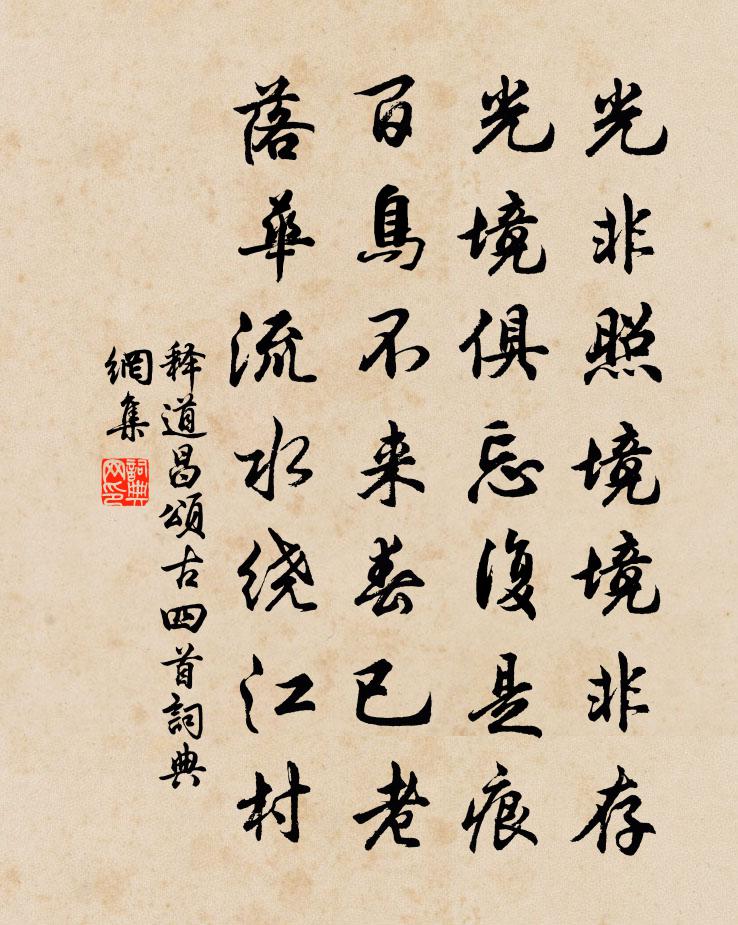 光非照境境非存
光境俱忘復是痕
百鳥不来春已老
落華流水绕江村
释道昌頌古四首詞典
網集
詞典網印